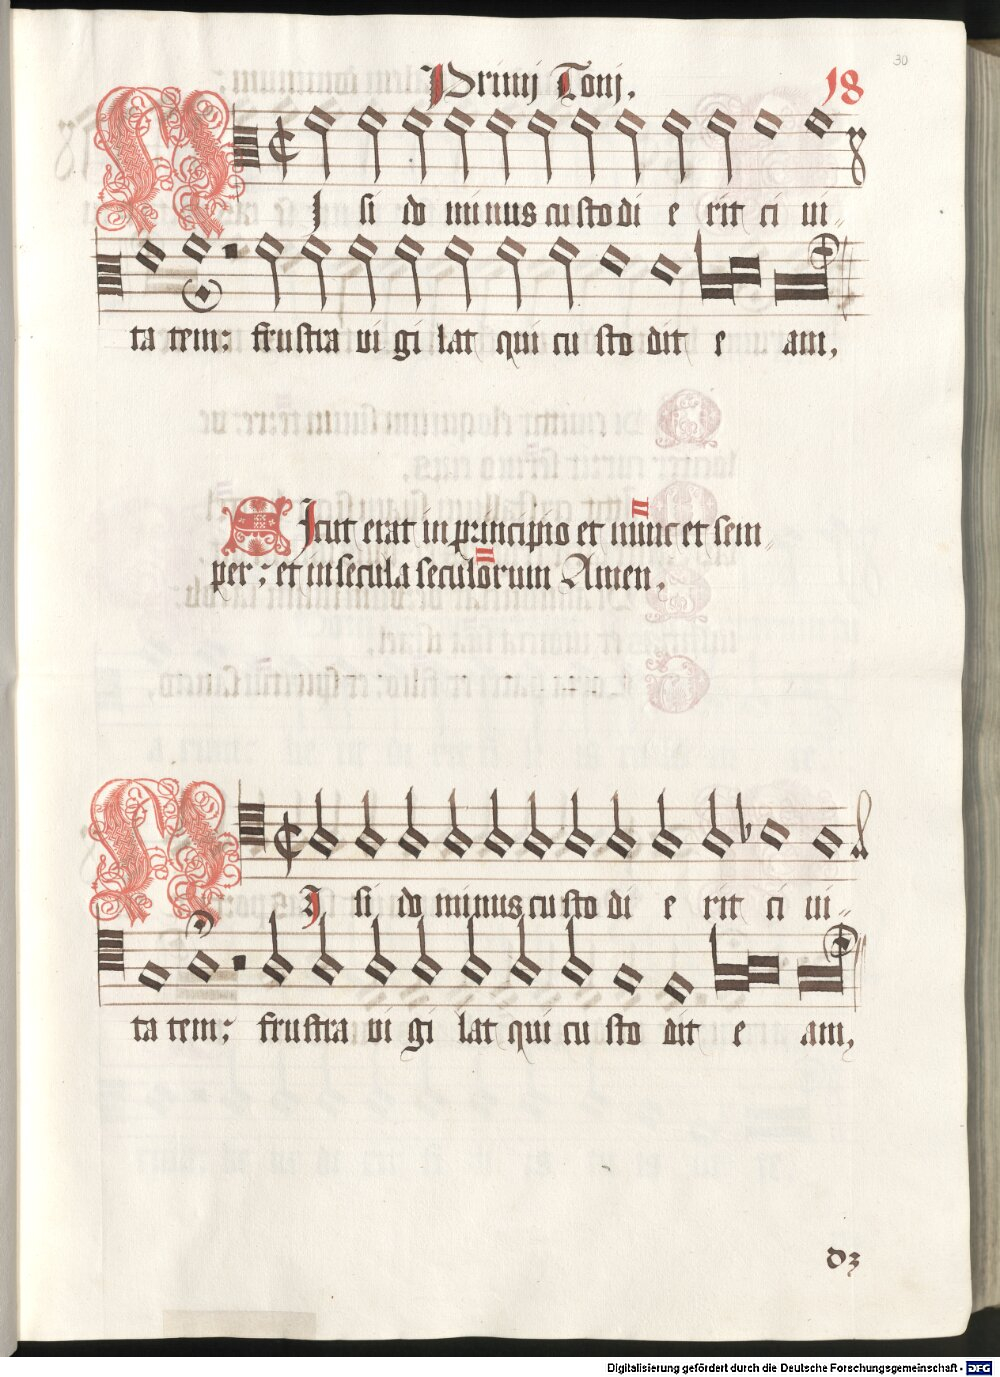 30
Primj Tonj.
18
NJ si do mi nus cu sto di e rit ci ui=
ta tem: frustra ui gi lat qui cu sto dit e am,
SJcut erat in principio et nunc et sem=
per; et in secula seculorum Amen.
NJ si do mi nus cu sto di e rit ci ui=
ta tem; frustra ui gi lat qui cu sto dit e am,
d3
Digitalisierung gefördert durch die Deutsche Forschungsgemeinschaft - DFG